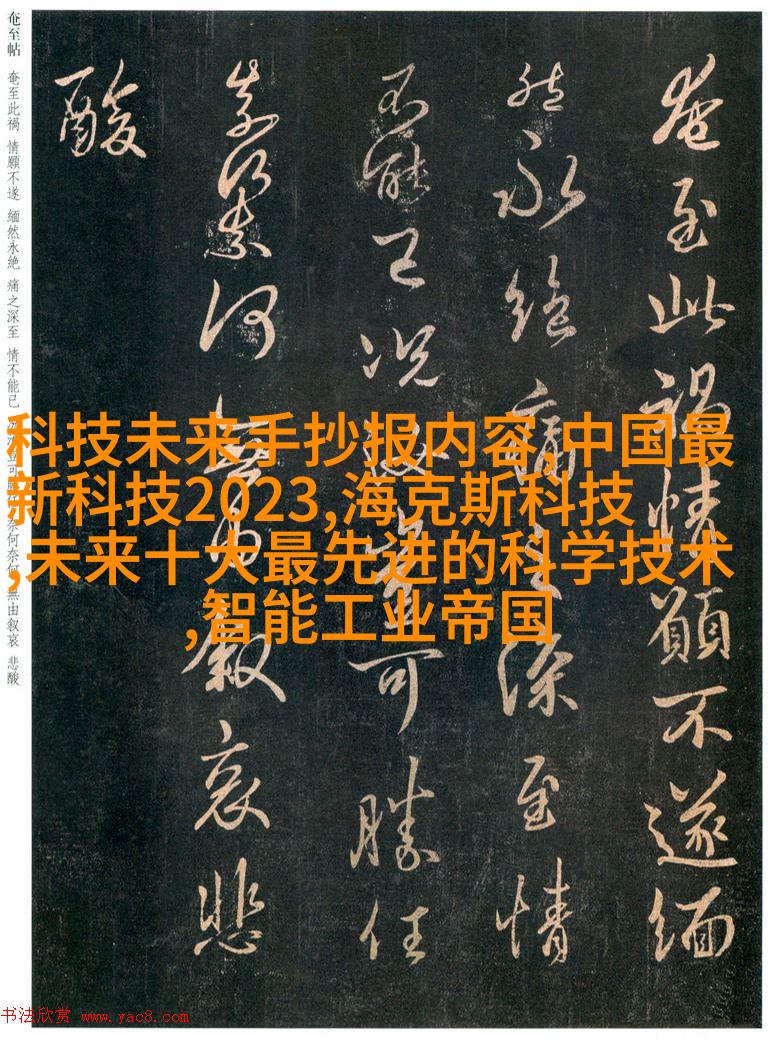 奄至此禍情願不遂緬
然永絶痛之深至情
不能已況可勝任
奈何奈何無由叙哀悲
酸
奄至帖 奄至此禍 情願不遂 緬然永絶 痛之深至 情不能已 奈何奈何 無由叙哀 悲酸
科技未来手抄报内容,中国最
新科技2023,海克斯科技
,未来十大最先进的科学技术
,智能工业帝国
书法欣赏 www.yac8.com